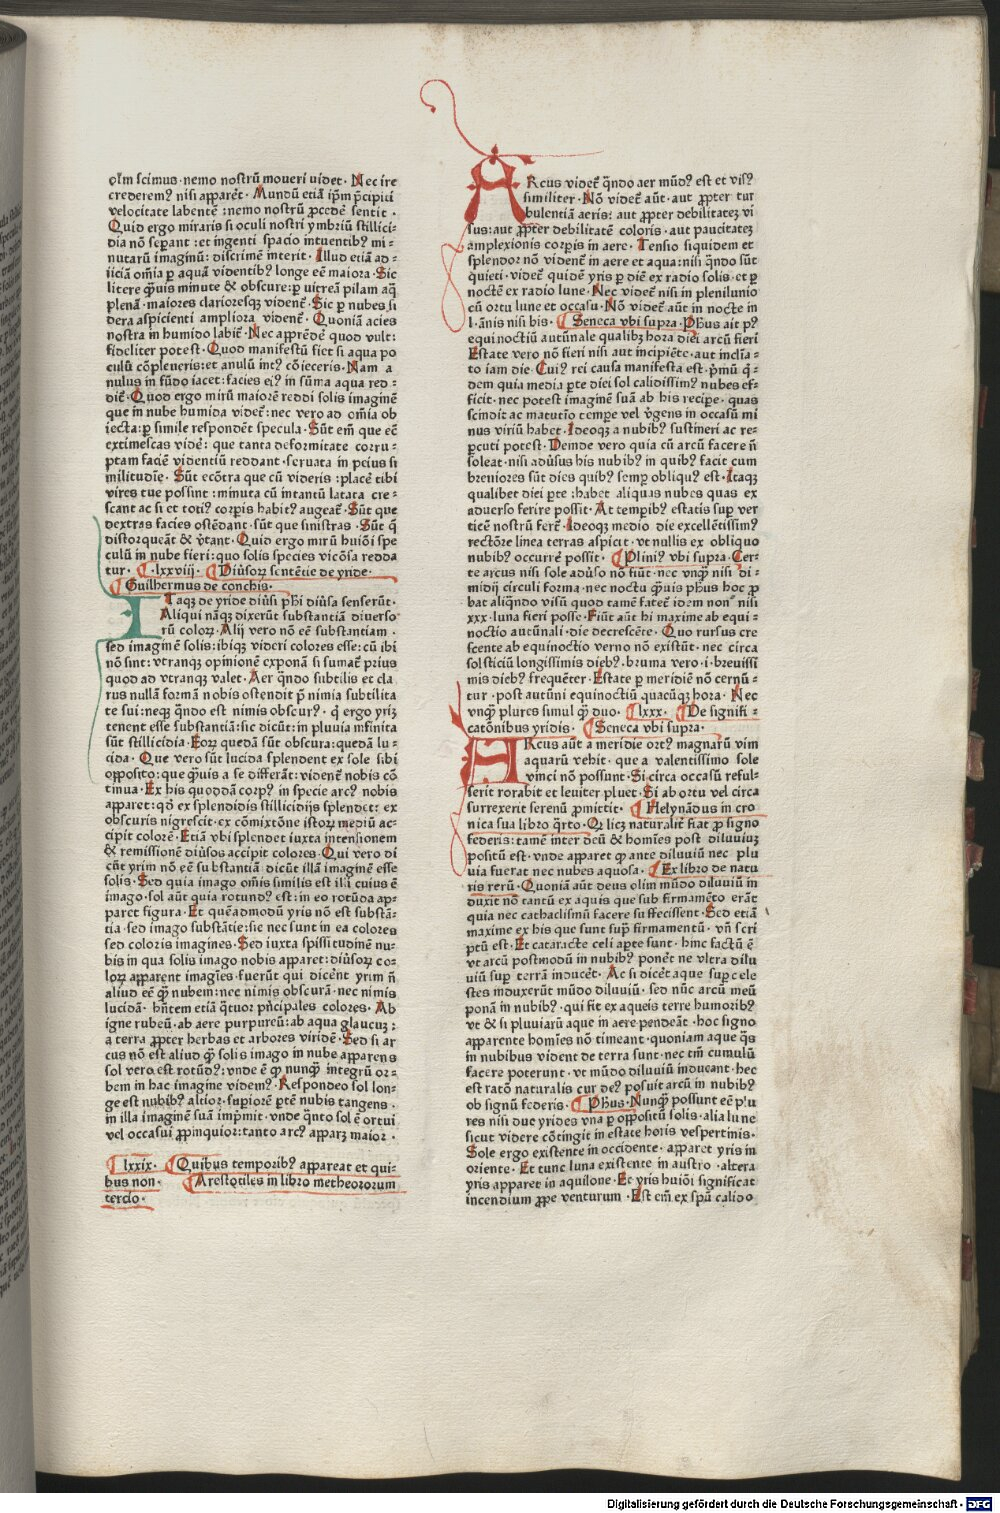 olm scimus · nemo nostrū moueri uidet · Nec ire
crederemꝰ nisi apparēt · Mundū etiā ipm p̄cipiti
velocitate labentē : nemo nostrū ꝓcedē sentit ·
Quid ergo miraris si oculi nostri ymbriū stillici-
dia nō seꝑant : et ingenti spacio intuentibꝰ mi-
nutarū imaginū : discrimē interit · Illud etiā ad-
iiciā om̄ia ꝑ aquā videntibꝰ longe eē maiora · Sic
litere q̄uis minute & obscure : ꝑ uitreā pilam aq̄
plenā · maiores clarioresqꝫ videnī · Sic ꝑ nubes si
dera aspicienti ampliora videnī · Quoniā acies
nostra in humido labiī · Nec apprēdē quod vult :
fideliter potest · Quod manifestū fiet si aqua po
culū cōpleueris : et anulū intꝰ cōieceris · Nam a
nulus in fūdo iacet : facies eiꝰ in sūma aqua red-
diī · Quod ergo mirū maiorē reddi solis imaginē
que in nube humida videī : nec vero ad om̄ia ob
iecta : ꝑ simile respondēt specula · Sūt em̄ que eē
extimescas vidē : que tanta deformitate corru-
ptam faciē videntiū reddant · seruata in peius si
militudīe · Sūt ecōtra que cū videris : placēt tibi
vires tue possint : minuta cū intantū latata cre-
scant ac si et totiꝰ corꝑis habitꝰ augeaī · Sūt que
dextras facies ostēdant · sūt que sinistras · Sūt q̄
distorqueāt & v̄tant · Quid ergo mirū huiōi spe
culū in nube fieri : quo solis species vicōsa redda
tur · ¶ · lxxviij · ¶ Diūsoꝝ sentētie de yride ·
¶ Guilhermus de conchis ·
ITaqꝫ de yride diūsi phi diūsa senserūt ·
Aliqui nāqꝫ dixerūt substantiā diuerso
rū coloꝝ · Alij vero nō eē substantiam ·
sed imaginē solis : ibiqꝫ videri colores esse : cū ibi
nō sint : vtranqꝫ opinionē exponā si sumaī prius
quod ad vtranqꝫ valet · Aer q̄ndo subtilis et cla
rus nullā formā nobis ostendit p̄ nimia subtilita
te sui : neqꝫ q̄ndo est nimis obscurꝰ · q̄ ergo yriꝫ
tenent esse substantiā : sic dicūt : in pluuia infinita
sūt stillicidia · Eoꝝ quedā sūt obscura : quedā lu-
cida · Que vero sūt lucida splendent ex sole sibi
opposito : que q̄uis a se differāt : videnī nobis cō
tinua · Ex his quoddā corpꝰ in specie arcꝰ nobis
apparet : qd ex splendidis stillicidijs splendet : ex
obscuris nigrescit · ex cōmixtōne istoꝝ mediū ac-
cipit colorē · Etiā vbi splendet iuxta intensionem
& remissionē diūsos accipit colores · Qui vero di
cūt yrim nō eē substantiā dicūt illā imaginē esse
solis · Sed quia imago om̄is similis est illi cuius ē
imago · sol aūt quia rotundꝰ est : in eo rotūda ap-
paret figura · Et quēadmodū yris nō est substā-
tia · sed imago substātie : sic nec sunt in ea colores
sed coloris imagines · Sed iuxta spissitudinē nu-
bis in qua solis imago nobis apparet : diūsoꝝ co-
loꝝ apparent imagīes · fuerūt qui dicēnt yrim n̄
aliud eē q̄ nubem : nec nimis obscurā · nec nimis
lucidā · hn̄tem etiā q̄tuor pn̄cipales colores · Ab
igne rubeū · ab aere purpureū : ab aqua glaucuꝫ :
a terra ꝓpter herbas et arbores viridē · Sed si ar
cus nō est aliud q̄ solis imago in nube apparens
sol vero est rotūdꝰ : vnde ē qꝫ nunq̄ integrū or-
bem in hac imagine videmꝰ · Respondeo sol lon-
ge est nubibꝰ altior · suꝑiorē ꝑtē nubis tangens ·
in illa imaginē suā imp̄mit · vnde q̄nto sol ē ortui
vel occasui ꝓpinquior : tanto arcꝰ appaꝫ maior ·
¶ lxxix · ¶ Quibus temporibꝰ appareat et qui-
bus non · ¶ Arestotiles in libro metheororum
tercio ·
ARcus videī q̄ndo aer mūdꝰ est et visꝰ
similiter · Nō videī aūt · aut ꝓpter tur
bulentiā aeris : aut ꝓpter debilitateꝫ vi
sus : aut ꝓpter debilitatē coloris · aut paucitateꝫ
amplexionis corꝑis in aere · Tensio siquidem et
splendor nō videnī in aere et aqua : nisi q̄ndo sūt
quieti · videī quidē yris ꝑ diē ex radio solis · et ꝑ
noctē ex radio lune · Nec videī nisi in plenilunio
cū ortu lune et occasu · Nō videī aūt in nocte in
l · ānis nisi bis · ¶ Seneca vbi supra · Phus ait pꝰ
equinoctiū autūnale qualibꝫ hora diei arcū fieri
Estate vero nō fieri nisi aut incipiēte · aut inclīa-
to iam die · Cuiꝰ rei causa manifesta est · p̄mū q̄-
dem quia media ꝑte diei sol calidissimꝰ nubes ef-
ficit · nec potest imaginē suā ab his recipe · quas
scindit ac matutīo tempe vel v̄gens in occasū mi
nus viriū habet · Ideoqꝫ a nubibꝰ sustineri ac re-
ꝑcuti potest · Demde vero quia cū arcū facere n̄
soleat · nisi adūsus his nubibꝰ in quibꝰ facit cum
breniores sūt dies quibꝰ semꝑ obliquꝰ est · Itaqꝫ
qualibet diei ꝑte : habet aliquas nubes quas ex
aduerso ferire possit · At temꝑibꝰ estatis suꝑ ver
ticē nostrū ferī · Ideoqꝫ medio die excellētissimꝰ
rectōre linea terras aspicit · vt nullis ex obliquo
nubibꝰ occurrē possit · ¶ Pliniꝰ vbi supra · Cer-
te arcus nisi sole adūso nō fiūt · nec vnq̄ nisi di-
midij circuli forma · nec noctu q̄uis phus hoc ꝓ
bat aliq̄ndo visū quod tamē fateī idem non nisi
xxx · luna fieri posse · Fiūt aūt hi maxime ab equi-
noctio autūnali · die decrescēte · Quo rursus cre
scente ab equinoctio verno nō existūt · nec circa
solsticiū longissimis diebꝰ · bruma vero · i · breuissi
mis diebꝰ frequēter · Estate ꝑ meridiē nō cernū-
tur · post autūni equinoctiū quacūqꝫ hora · Nec
vnq̄ plures simul q̄ duo · ¶ lxxx · ¶ De signifi-
catōnibus yridis · ¶ Seneca vbi supra ·
ARcus aūt a meridie ortꝰ magnarū vim
aquarū vehit · que a valentissimo sole
vinci nō possunt · Si circa occasū reful-
serit rorabit et leuiter pluet · Si ab ortu vel circa
surrexerit serenū ꝓmittit · ¶ Helynādus in cro
nica sua libro q̄rto · Qꝫ licꝫ naturalit̄ fiat ꝓ signo
federis : tamē inter deū & homīes post diluuiuꝫ
positū est · vnde apparet qꝫ ante diluuiū nec plu
uia fuerat nec nubes aquosa · ¶ Ex libro de natu
ris rerū · Quoniā aūt deus olim mūdo diluuiū in
duxit nō tantū ex aquis que sub firmamēto erāt
quia nec cathaclismū facere suffecissent · Sed etiā
maxime ex his que sunt supꝰ firmamentū · vn̄ scri
ptū est · Et cataracte celi aꝑte sunt · hinc factū ē
vt arcū postmodū in nubibꝰ ponēt ne vltra dilu
uiū suꝑ terrā inducēt · Ac si dicēt aque suꝑ cele
stes induxerūt mūdo diluuiū · sed nūc arcū meū
ponā in nubibꝰ · qui fit ex aqueis terre humoribꝰ
vt & si pluuiarū aque in aere pendeāt · hoc signo
apparente homīes nō timeant · quoniam aque q̄s
in nubibus vident de terra sunt · nec tm̄ cumulū
facere poterunt · vt mūdo diluuiū inducant · hec
est ratō naturalis cur deꝰ posuit arcū in nubibꝰ
ob signū federis · ¶ Phus · Nunq̄ possunt eē plu
res nisi due yrides vna ꝑ oppositū solis · alia lune
sicut videre cōtingit in estate horis vespertinis ·
Sole ergo existente in occidente · apparet yris in
oriente · Et tunc luna existente in austro · altera
yris apparet in aquilone · Et yris huiōi significat
incendium ꝓpe venturum · Est em̄ ex spū calido
Digitalisierung gefördert durch die Deutsche Forschungsgemeinschaft - DFG